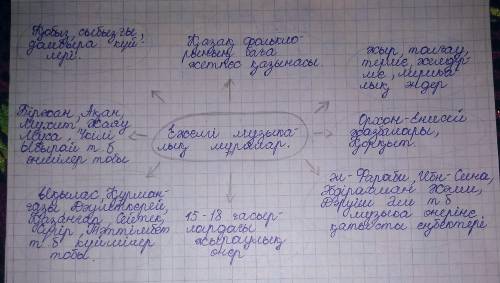 Қобыз, сыбызғы,
домбыра күй-
лері.
Қазақ фолькло-
рының баға
жетпес қазынасы
жыр, толғау,
терме, желдір-
ме, лирика-
лық әндер
Біржан, Ақан,
Мұхит, Жаяу
Мұса, Үкілі
Ыбырай т.б
әншілер тобы
Ежелгі музыка-
лық мұралар.
Орхон-Енисей
жазбалары,
Қорқыт.
Ықылас, Құрман-
ғазы Дәулеткерей,
Қазанғап, Сейтек,
Тәттімбет
т.б күйшілер
тобы.
15-18 ғасыр-
лардағы
жыраулық
өнер
әл-Фараби, Ибн-Сина,
Әбдірахман Жами,
Дәруіш Әли т.б
музыка өнеріне
қатысты еңбектері